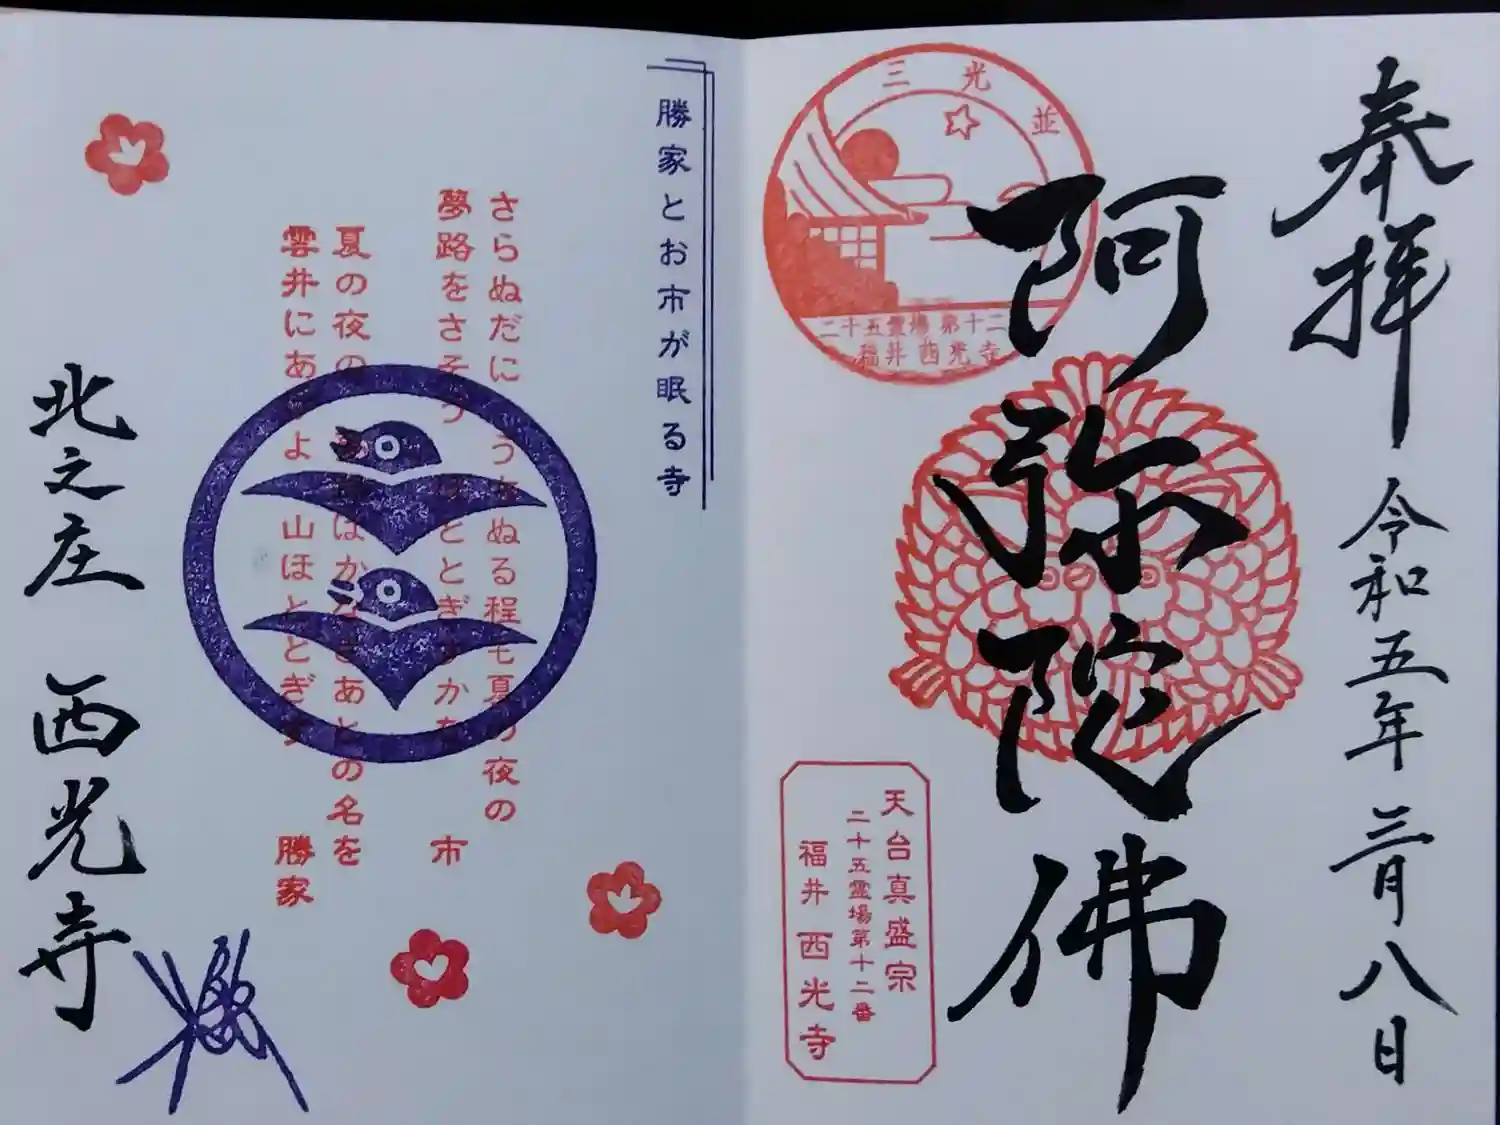 奉拝 令和五年 三月八日
阿弥陀佛
三光並
二十五霊場 第十二
福井 西光寺
天台真盛宗
二十五霊場第十二番
福井 西光寺
勝家とお市が眠る寺
さらぬだに うちぬる程も夏の夜の
夢路をさそう ほととぎすかな 市
夏の夜の 夢路はかなきあとの名を
雲井にあげよ 山ほととぎす 勝家
北之庄 西光寺